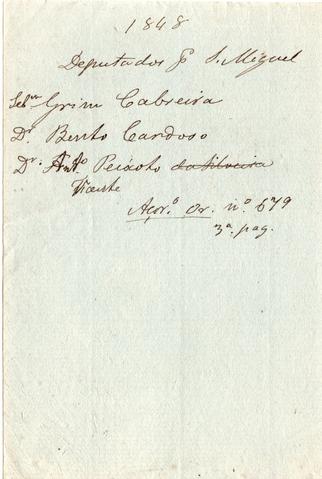 1848
Deputados p. S. Miguel
Seb.am Grim Cabreira
Dr. Bento Cardoso
Dr. Ant.o Peixoto da Silveira
Vicente
Açor.o Or. n.o 679
3.a pag.